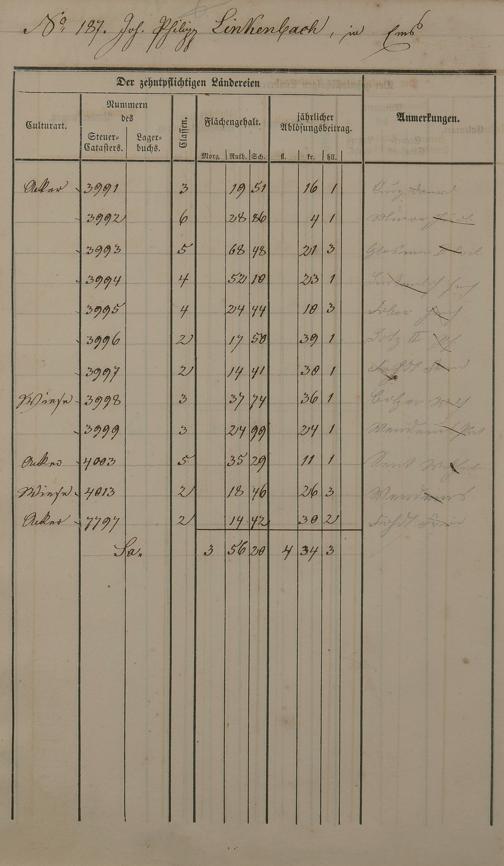 No 187. Joh. Philipp Linkenbach, in Ems
Der zehntpflichtigen Ländereien
Culturart. Nummern des Steuer-Catasters. Lager-buchs. Classen. Flächengehalt. Morg. Ruth. Sch. jährlicher Ablösungsbeitrag. fl. kr. hll. Anmerkungen.
Acker 3991 3 19 51 16 1
3992 6 28 86 4 1
3993 5 68 48 21 3
3994 4 52 10 23 1
3995 4 24 44 10 3
3996 2 17 50 39 1
3997 2 14 41 30 1
Wiese 3998 3 37 74 36 1
3999 3 24 99 24 1
Acker 4003 5 35 29 11 1
Wiese 4013 2 18 46 26 3
Acker 7797 2 14 42 30 2
Sa. 3 56 20 4 34 3